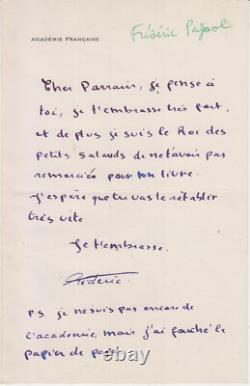 ACADÉMIE FRANÇAISE
Frédéric Pagnol
Cher Parrain, je pense à
toi, je t'embrasse très fort,
et de plus je suis le Roi des
petits salauds de net'avoir pas
remercié pour ton livre.
J'espère que tu vas le rétablir
très vite
Je t'embrasse.
Frédéric.
PS je ne suis pas encore de
l'academie, mais j'ai fauché le
papier de papa